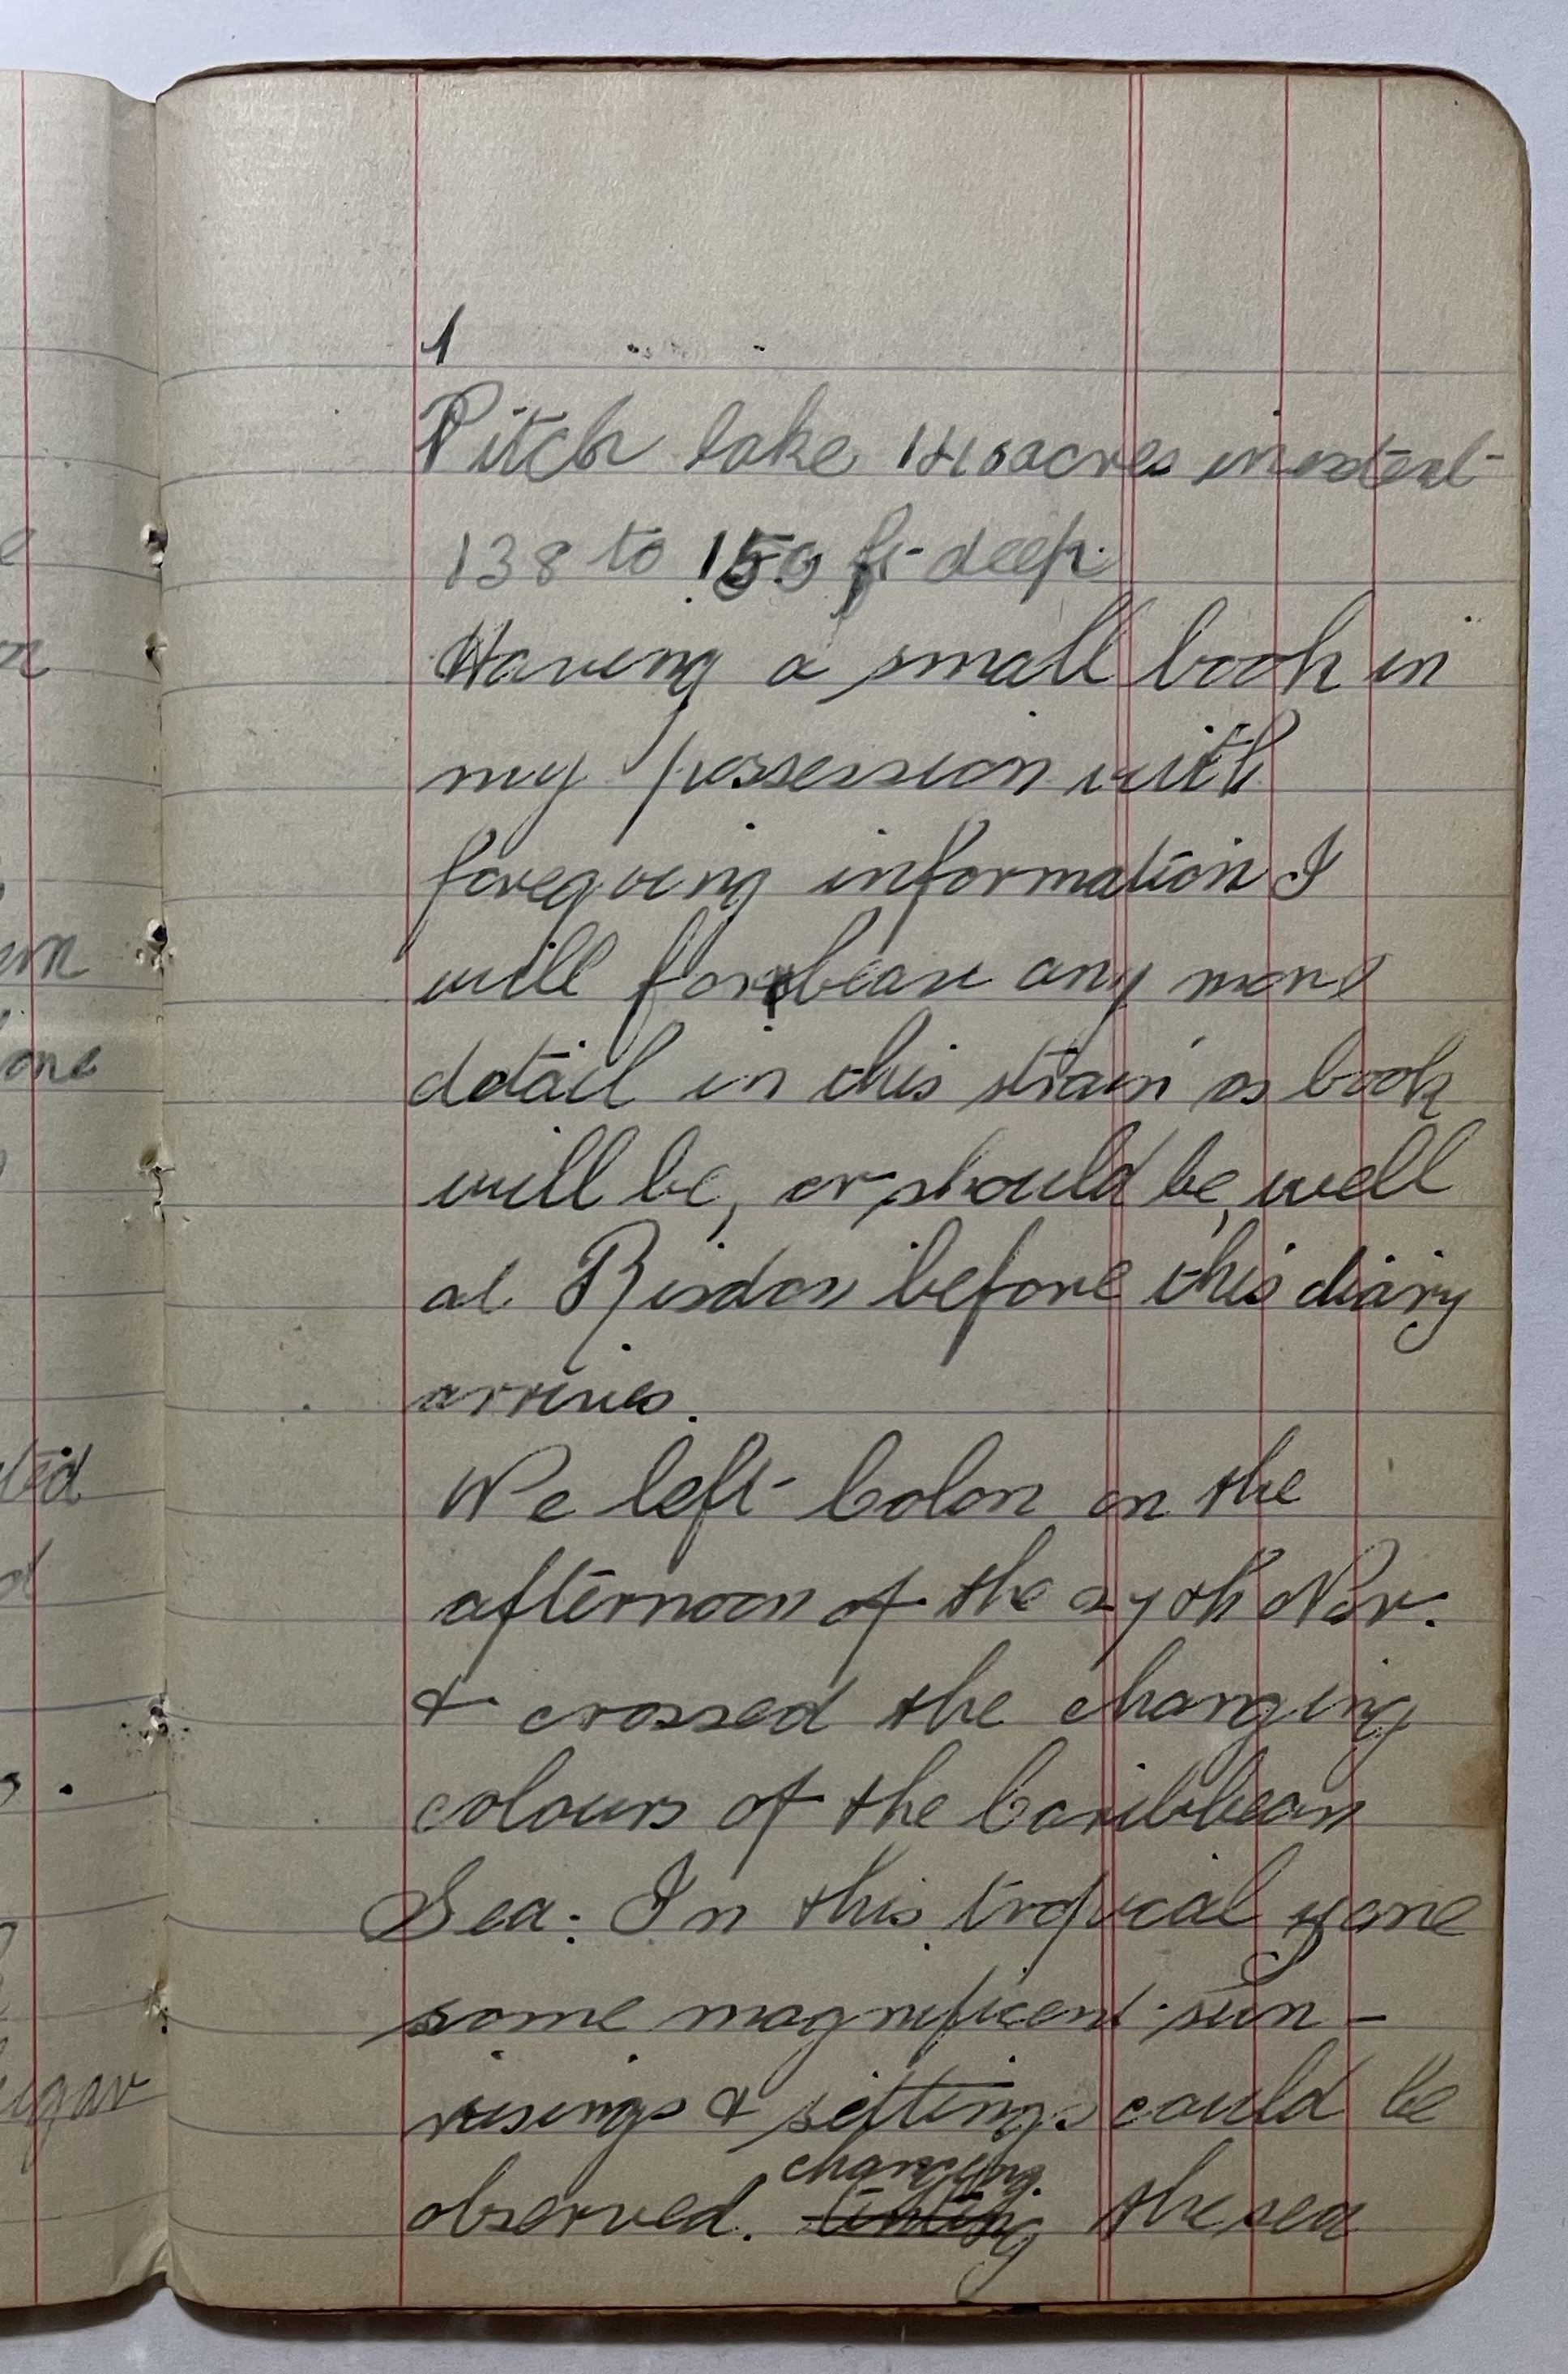 e
n
ern
one
ted
d
s.
ugar
1
Pitch lake acres in extent
138 to 150 ft deep.
Having a small book in
my possession with
foregoing information I
will forbear any more
detail in this strain as book
will be, or should be, well
at Risdon before this diary
arrives.
We left Colon on the
afternoon of the 27th Nov.
& crossed the changing
colours of the Caribbean
Sea. In this tropical zone
some magnificent sun-
risings & settings could be
changing
observed. tinting the sea